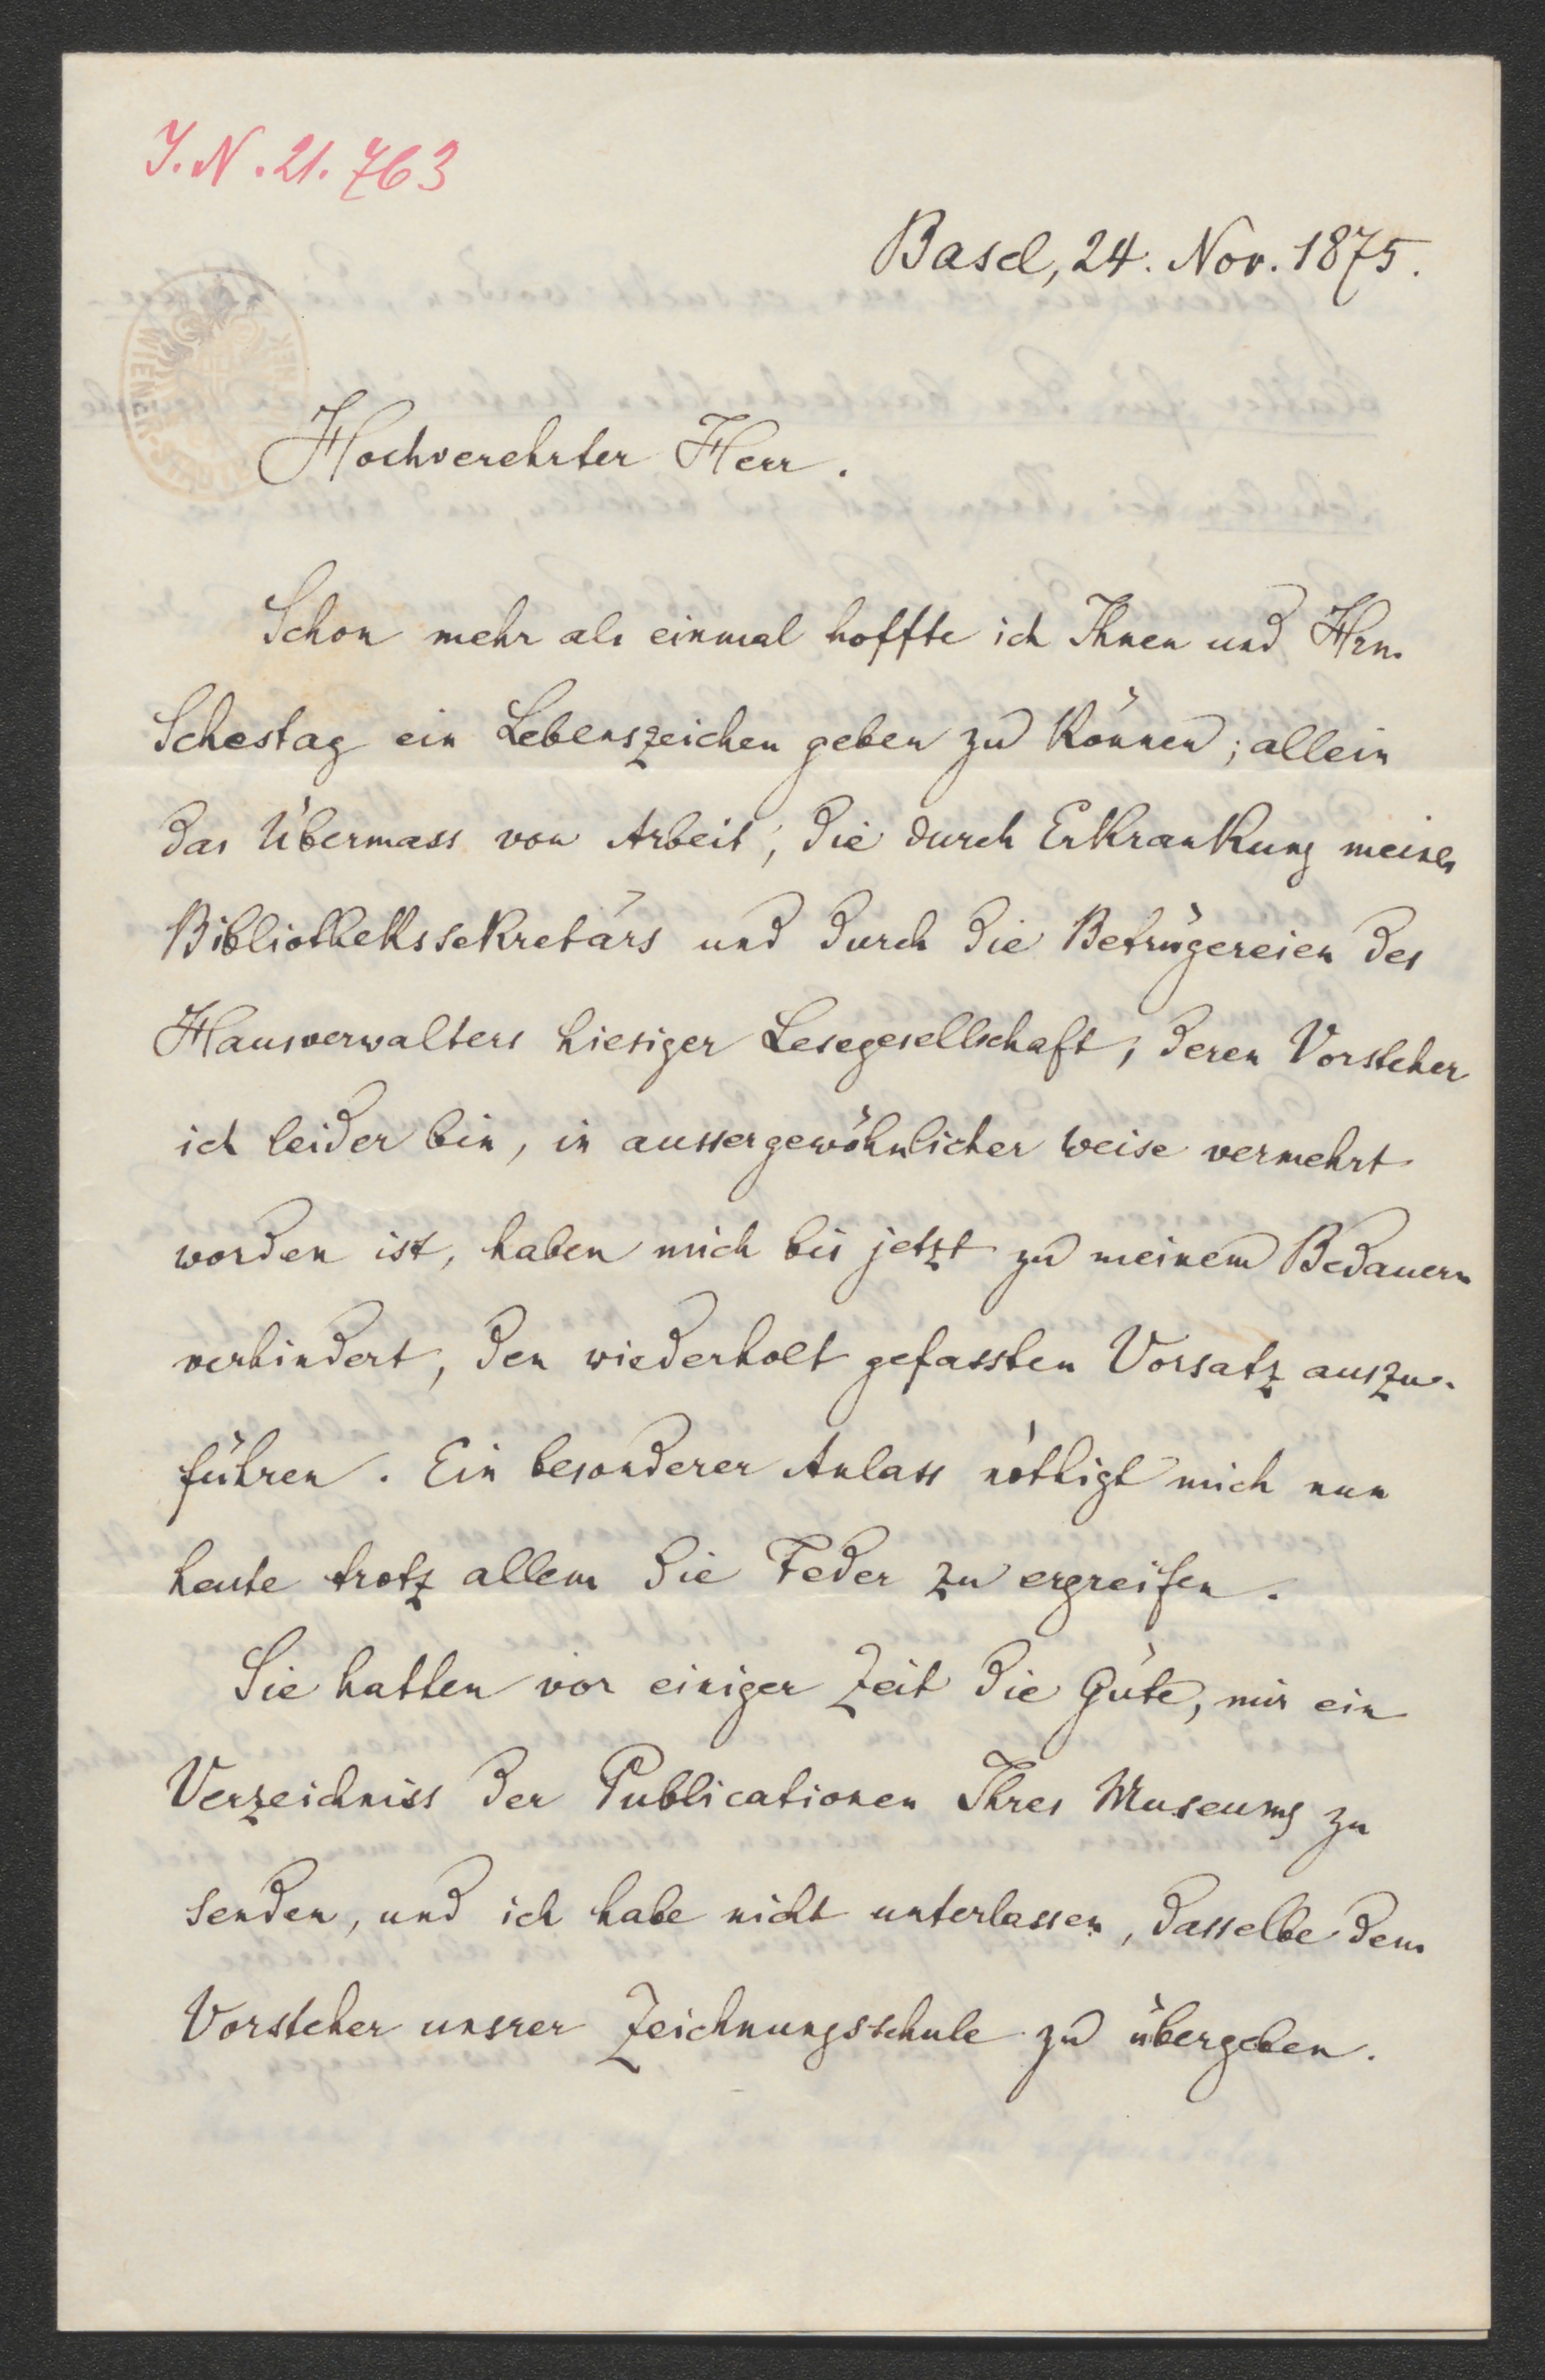 I.N.21.763
Basel, 24. Nov. 1875.
Hochverehrter Herr.
Schon mehr als einmal hoffte ich Ihnen und Hrn.
Schestag ein Lebenszeichen geben zu können; allein
das Übermass von Arbeit, die durch Erkrankung meines
Bibliothekssekretärs und durch die Betrügereien des
Hausverwalters hiesiger Lesegesellschaft, deren Vorsteher
ich leider bin, in aussergewöhnlicher Weise vermehrt
worden ist, haben mich bis jetzt zu meinem Bedauern
verhindert, den wiederholt gefassten Vorsatz auszu-
führen. Ein besonderer Anlass nöthigt mich nun
heute trotz allem die Feder zu ergreifen.
Sie hatten vor einiger Zeit die Güte, mir ein
Verzeichniss der Publicationen Ihres Museums zu
senden, und ich habe nicht unterlassen, dasselbe dem
Vorsteher unsrer Zeichnungsschule zu übergeben.